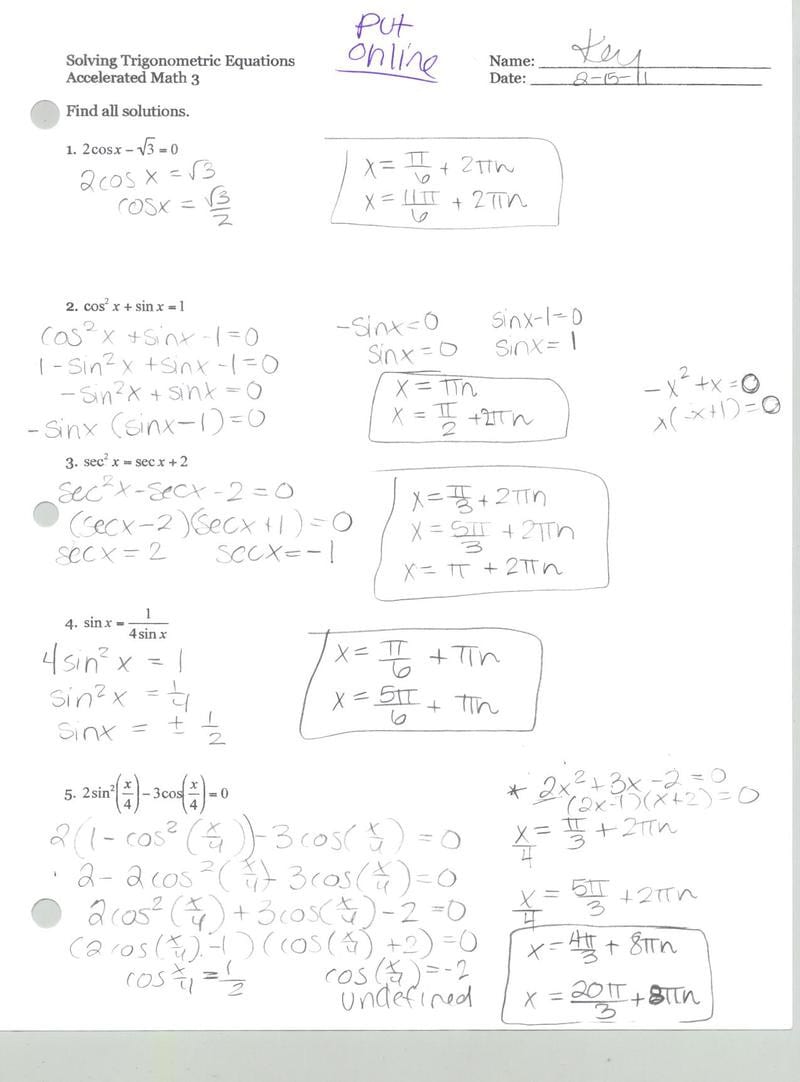 put
online
Solving Trigonometric Equations
Accelerated Math 3
Name: Key
Date: 2-15-11
Find all solutions.
1. 2cosx − √3 = 0
2cos x = √3
cosx = √3/2
x = π/6 + 2πn
x = 11π/6 + 2πn
2. cos² x + sin x = 1
cos²x + sinx - 1 = 0
1 - sin²x + sinx - 1 = 0
- sin²x + sinx = 0
- sinx (sinx - 1) = 0
-sinx = 0
sinx = 0
sinx-1=0
sinx = 1
x = πn
x = π/2 + 2πn
-x² + x = 0
x(-x+1) = 0
3. sec² x = sec x + 2
sec²x - secx - 2 = 0
(secx - 2)(secx + 1) = 0
secx = 2 secx = -1
x = π/3 + 2πn
x = 5π/3 + 2πn
x = π + 2πn
4. sin x = 1/(4 sin x)
4sin² x = 1
sin²x = 1/4
sinx = ± 1/2
x = π/6 + πn
x = 5π/6 + πn
5. 2sin²(x/4) − 3cos(x/4) = 0
2(1 - cos²(x/4)) - 3cos(x/4) = 0
2 - 2cos²(x/4) - 3cos(x/4) = 0
2cos²(x/4) + 3cos(x/4) - 2 = 0
(2cos(x/4) - 1)(cos(x/4) + 2) = 0
cos x/4 = 1/2
cos(x/4) = -2
undefined
* 2x² + 3x - 2 = 0
(2x-1)(x+2) = 0
x/4 = π/3 + 2πn
x/4 = 5π/3 + 2πn
x = 4π/3 + 8πn
x = 20π/3 + 8πn